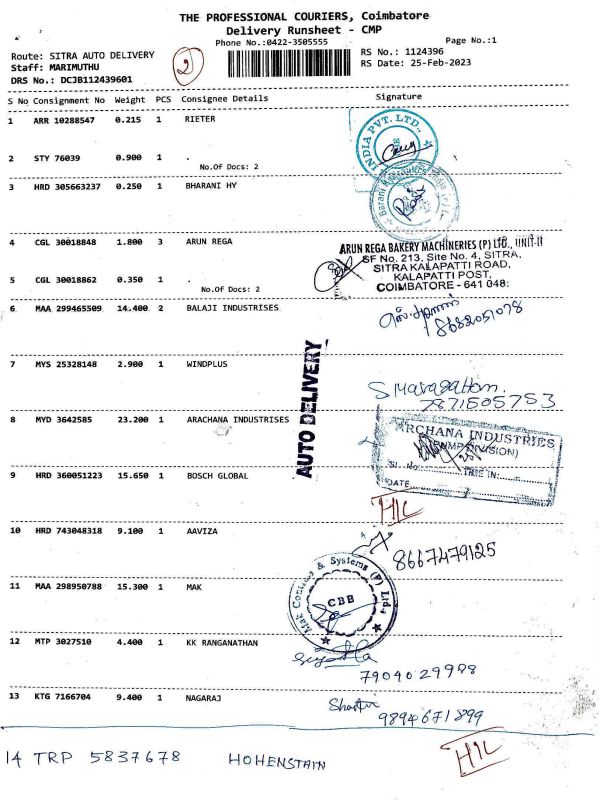 THE PROFESSIONAL COURIERS, Coimbatore
Delivery Runsheet - CMP
Phone No.:0422-3505555
Page No.:1
Route: SITRA AUTO DELIVERY
Staff: MARIMUTHU
DRS No.: DCJB112439601
2
RS No.: 1124396
RS Date: 25-Feb-2023
S No Consignment No Weight PCS Consignee Details Signature
1 ARR 10288547 0.215 1 RIETER
INDIA PVT. LTD.,
2 STY 76039 0.900 1 .
No.Of Docs: 2
3 HRD 305663237 0.250 1 BHARANI HY
4 CGL 30018848 1.800 3 ARUN REGA
ARUN REGA BAKERY MACHINERIES (P) LTD., UNIT-II
SF No. 213, Site No. 4, SITRA,
SITRA KALAPATTI ROAD,
KALAPATTI POST,
COIMBATORE - 641 048.
5 CGL 30018862 0.350 1 .
No.Of Docs: 2
6 MAA 299465509 14.400 2 BALAJI INDUSTRISES
8682051078
AUTO DELIVERY
7 MYS 25328148 2.900 1 WINDPLUS
7871505753
8 MYD 3642585 23.200 1 ARACHANA INDUSTRISES
ARCHANA INDUSTRIES
(PUMP DIVISION)
Sl. No. TIME IN:
DATE
9 HRD 360051223 15.650 1 BOSCH GLOBAL
H/L
10 HRD 743048318 9.100 1 AAVIZA
8667479125
11 MAA 298950788 15.300 1 MAK
Mak Controls & Systems (P) Ltd.,
CBB
12 MTP 3027510 4.400 1 KK RANGANATHAN
7904029988
13 KTG 7166704 9.400 1 NAGARAJ
9894671899
14 TRP 5837678 HOHENSTAIN
H/L